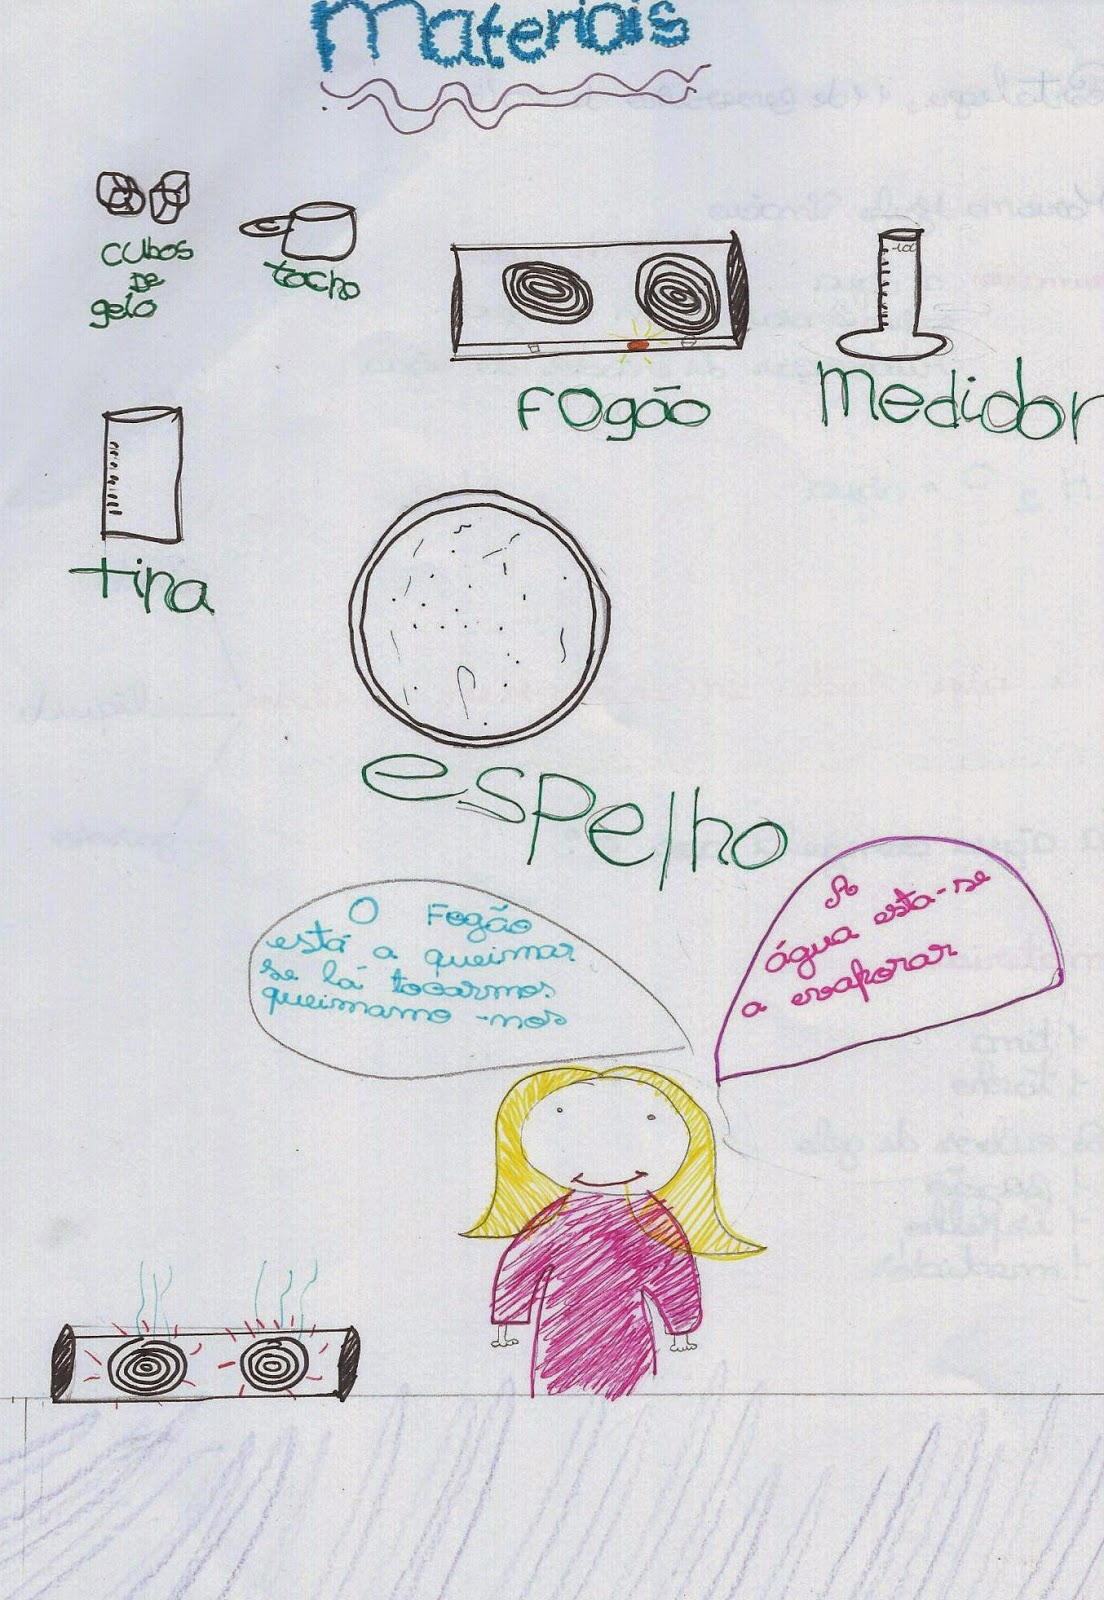 Materiais
cubos
de
gelo
tacho
Fogão
Medidor
tina
espelho
O Fogão
está a queimar
se lá tocarmos
queimamo-nos
A
água esta-se
a evaporar